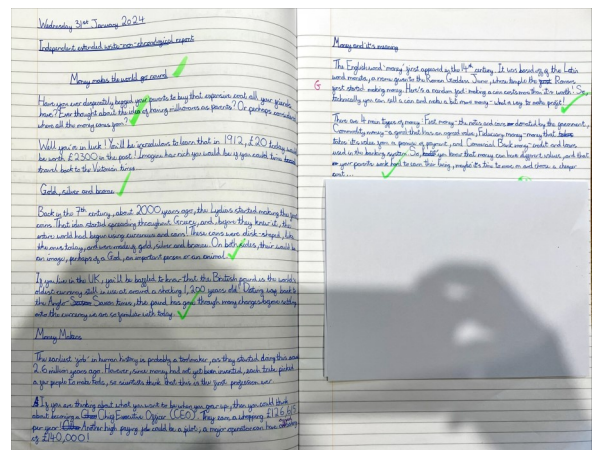 Wednesday 31st January 2024
Independent extended write-non-chronological report
Money makes the world go round
Have you ever desperately begged your parents to buy that expensive coat all your friends
have? Ever thought about the idea of having millionaires as parents? Or perhaps considered
where all the money comes from?
Well you're in luck! You'll be incredulous to learn that in 1912, £20 today would
be worth £2300 in the past! Imagine how rich you would be if you could time
travel back to the Victorian times.
Gold, silver and bronze
Back in the 7th century, about 2000 years ago, the Lydians started making the first
coins. That idea started spreading throughout Greece, and before they knew it, the
entire world had begun using currencies and coins! These coins were disk-shaped, like
the ones today, and were made of gold, silver and bronze. On both sides, their would be
an image, perhaps of a God, an important person or an animal.
If you live in the UK, you'll be baffled to know that the British pound is the world's
oldest currency still in use at around a shocking 1,200 years old! Dating way back to
the Anglo Saxon times, the pound has gone through many changes before settling
into the currency we are so familiar with today.
Money Makers
The earliest 'job' in human history is probably a toolmaker, as they started doing this around
2.6 million years ago. However, since money had not yet been invented, each tribe picked
a few people to make tools, so scientists think that this is the first profession ever.
If you are thinking about what you want to be when you grow up, then you could think
about becoming a Chief Executive Officer (CEO). They earn a whopping £126,615
per year. Another high paying job could be a pilot; a major operation can have
of £140,000!
Money and it's meaning
The English word 'money' first appeared in the 14th century. It was based of of the Latin
word moneta, a name given to the Roman Goddess Juno, whose temple the Romans
G
first started making money. Here's a random fact- making a coin costs more than it's worth! So,
technically you can sell a coin and make a bit more money - what a way to make profit!
There are 4 main types of money: Fiat money- the notes and coins denoted by the government,
Commodity money- a good that has an agreed value, Fiduciary money- money that takes
takes it's value upon a promise of payment, and Commercial Bank money- credit and loans
used in the banking system. So, you know that money can have different values, and that
your parents work hard to earn their living, maybe it's time to and choose a cheaper
coat...